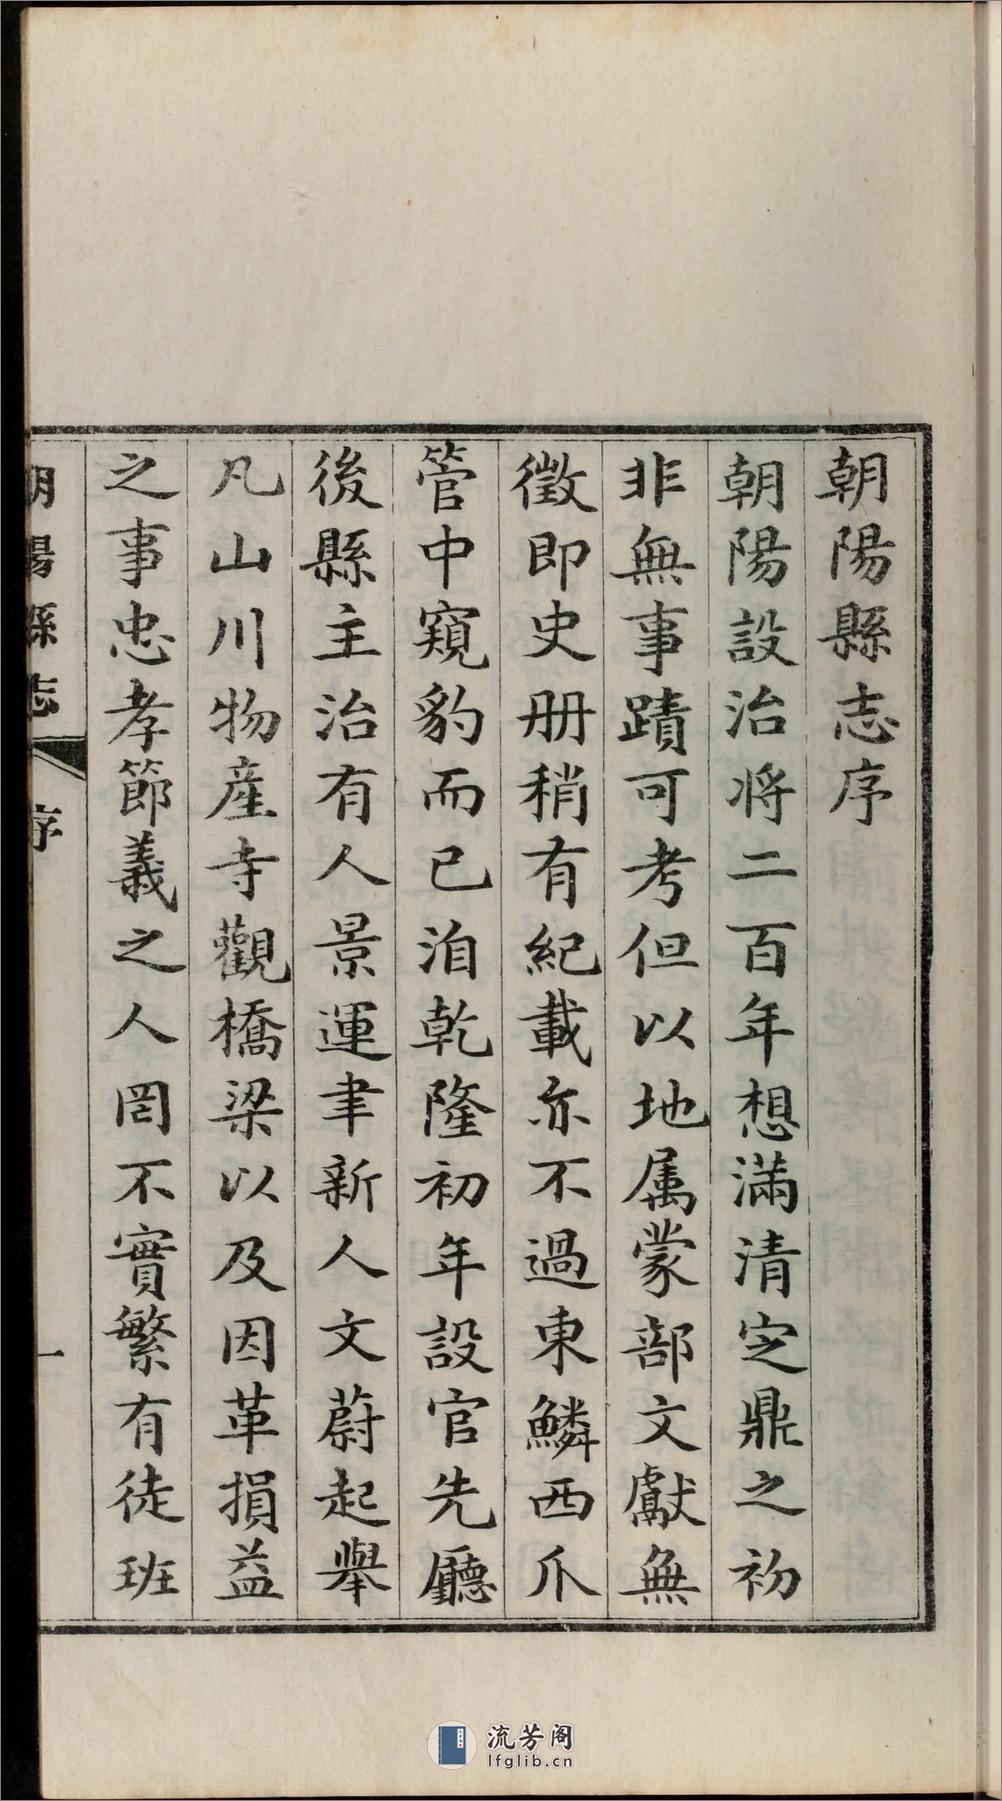 朝陽縣志序
朝陽設治將二百年想滿清定鼎之初
非無事蹟可考但以地属蒙部文獻無
徵即史册稍有紀載亦不過東鱗西爪
管中窺豹而已洎乾隆初年設官先廳
後縣主治有人景運聿新人文蔚起舉
凡山川物產寺觀橋梁以及因革損益
之事忠孝節義之人罔不實繁有徒班
朝陽縣志 序 一
流芳阁
lfglib.cn